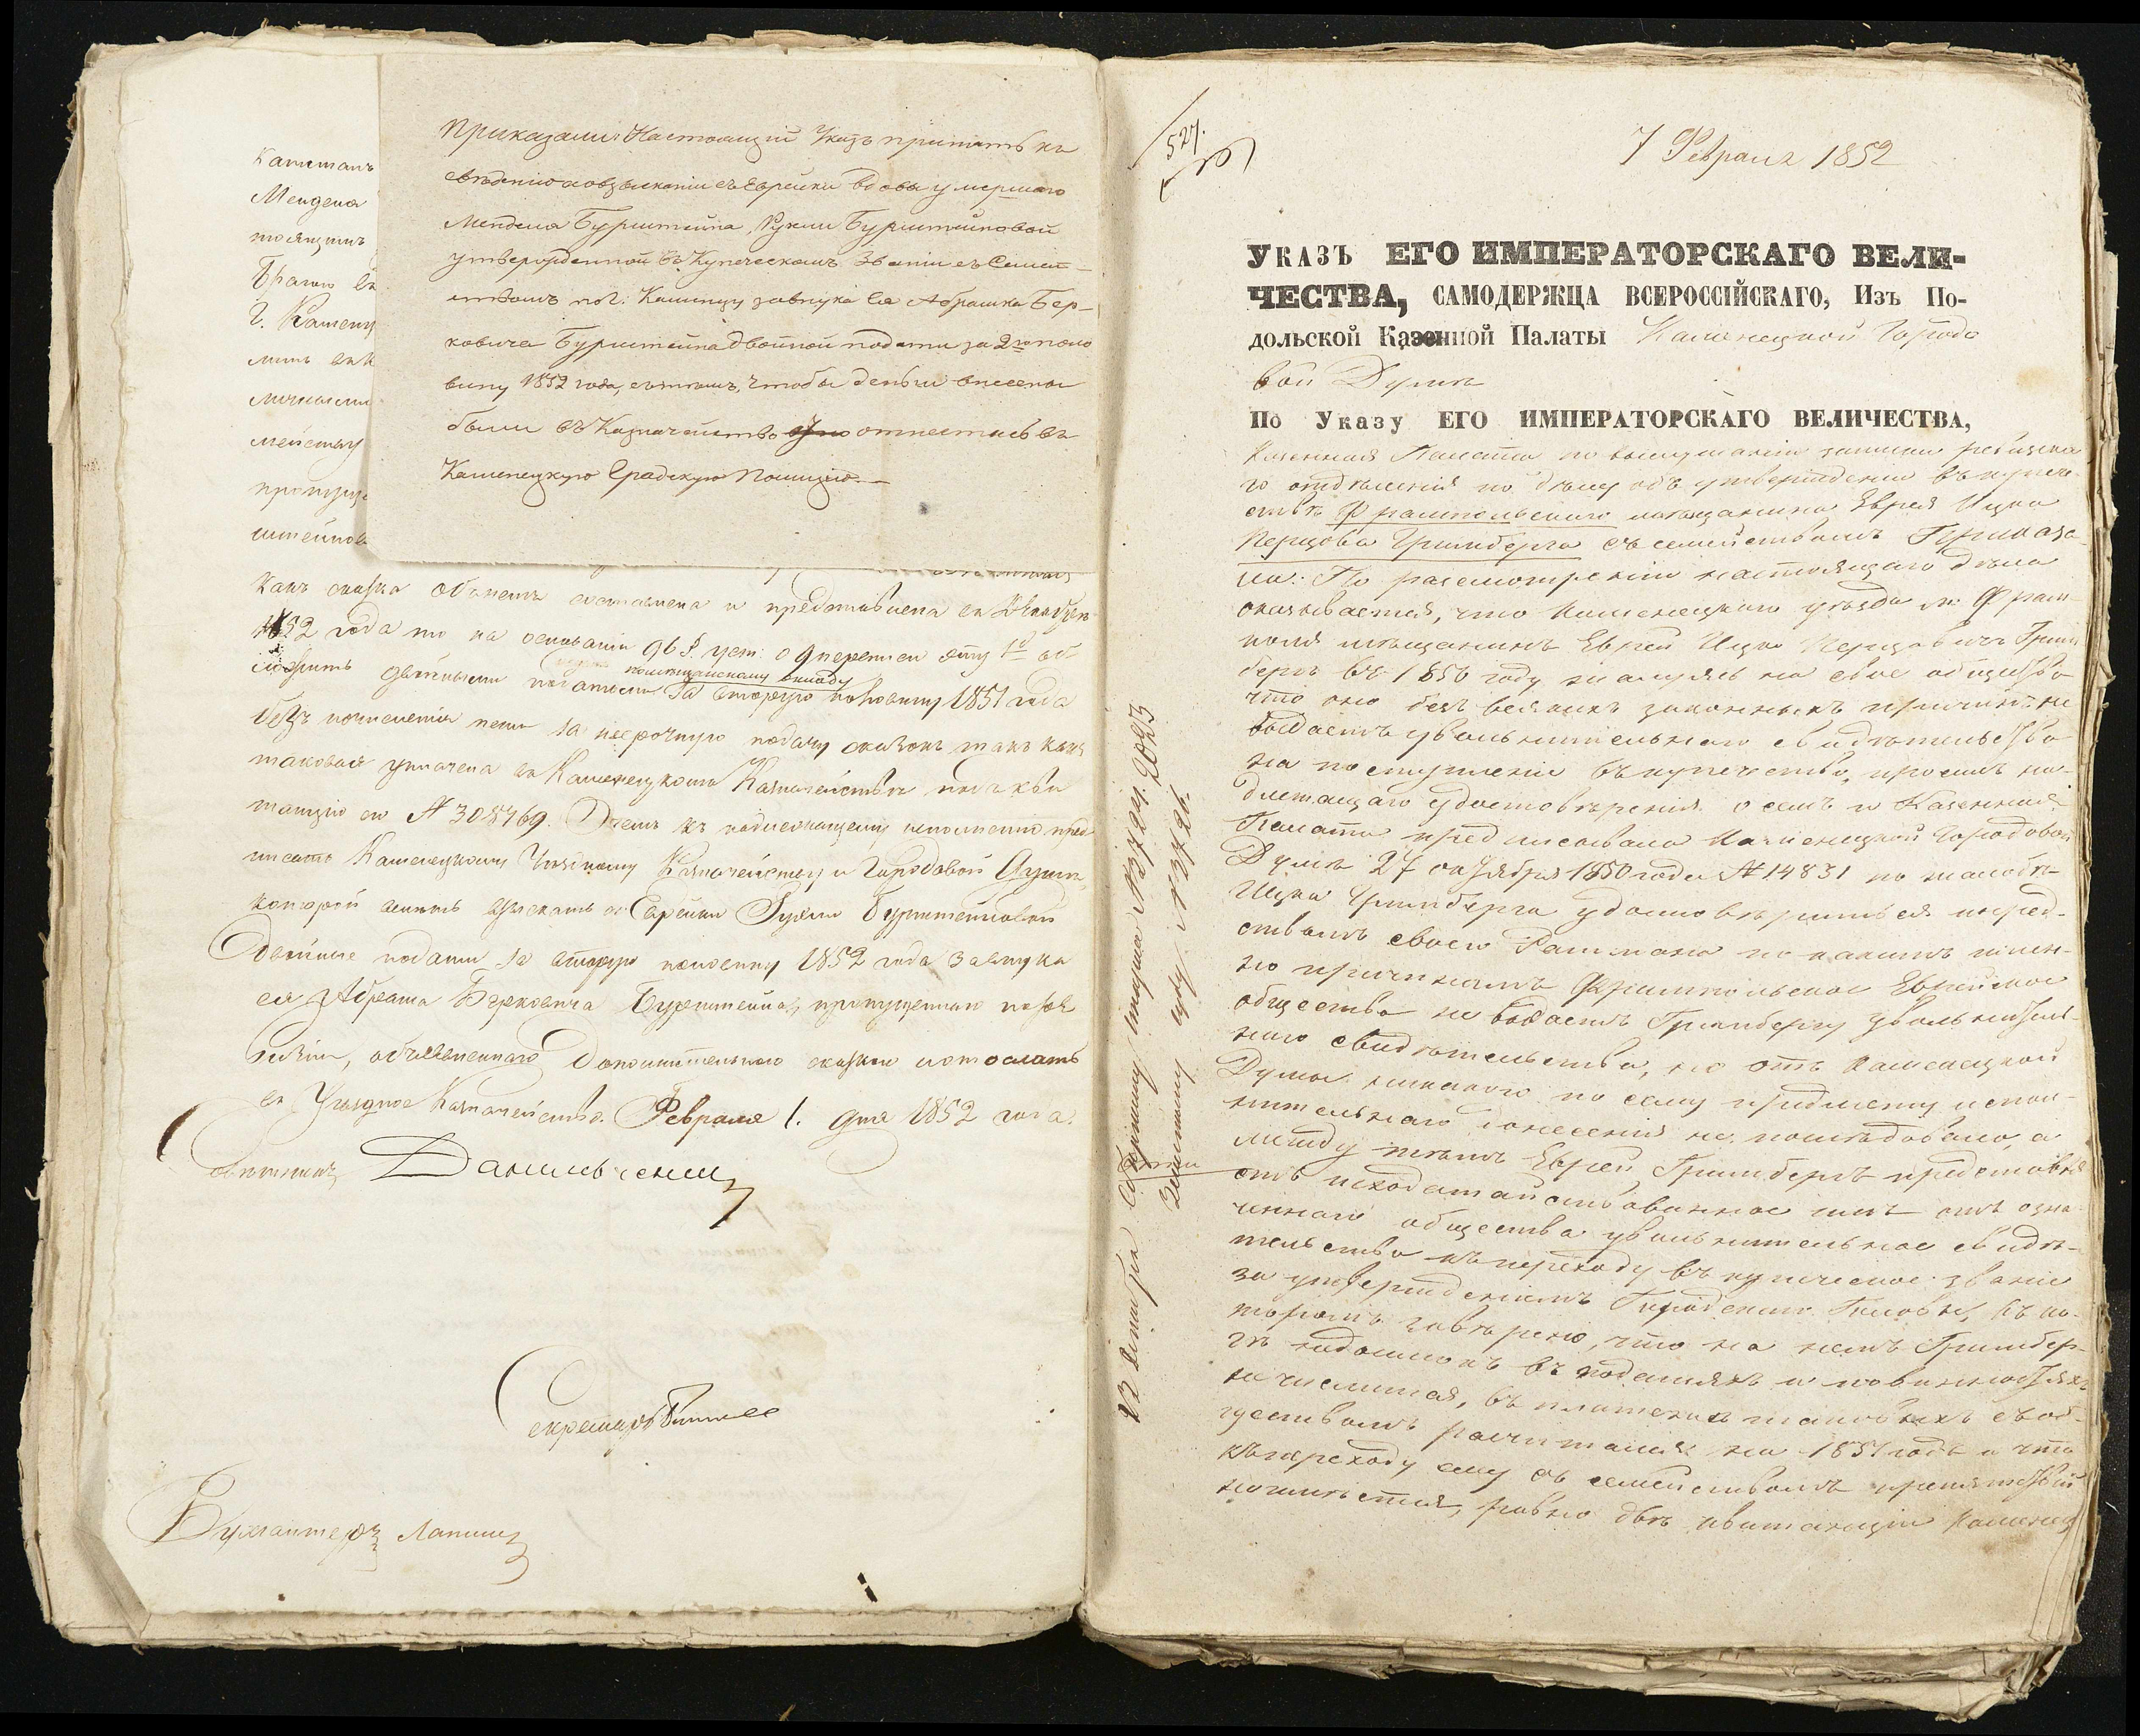 Капитанъ
Менделя
тоящимъ
Браго въ
г. Каменц
мейству
пропуще
штейнов
Приказали: Настоящій Указъ принять къ
свѣденію а о взысканіи съ Еврейки вдовы умершаго
Менделя Бурштейна, Рухли Бурштейновой
утвержденной въ Купеческомъ званіи съ Семей-
ствомъ по г. Каменцу за внука Ея Абрашка Бер-
ковича Бурштейна двойной подати за 2ю поло
вину 1852 года, съ тѣмъ, чтобы деньги внесены
были въ Казначейство отнестись въ
Каменецкую Градскую Полицію.
какъ сказка объ немъ составлена и представлена въ Декабрѣ
1852 года то на основаніи 96 § уст: о 9 переписи
двойными податьми по мѣщанскому окладу за вторую половину 1851 года
безъ начисленія пени за несрочную подачу сказокъ такъ какъ
таковая уплачена въ Каменецкомъ Казначействѣ подъ кви
танцію въ № 3085769. О чемъ къ надлежащему исполненію пред
писать Каменецкому Уѣздному Казначейству и Городовой Думѣ,
которой велѣть взыскать съ Еврейки Рухли Бурштейновой
двойные подати за вторую половину 1852 года за внука
ея Абраша Берковича Бурштейна, пропущеннаго по 9й ре
визіи, объявленнаго дополнительною сказкою и отослать
въ Уѣздное Казначейство. Февраля 1. дня 1852 года.
Совѣтникъ Данильченко
Секретарь
Бухгалтеръ Лапинъ
527.
7 Февраля 1852
УКАЗЪ ЕГО ИМПЕРАТОРСКАГО ВЕЛИ-
ЧЕСТВА, САМОДЕРЖЦА ВСЕРОССІЙСКАГО, Изъ По-
дольской Казенной Палаты Каменецкой Городо
вой Думѣ
По Указу ЕГО ИМПЕРАТОРСКАГО ВЕЛИЧЕСТВА,
Казенная Палата по выслушаніи записки ревизска
го отдѣленія по дѣлу объ утвержденіи въ купе-
ствѣ Фрампольскаго мѣщанина Еврея Ицка
Перцова Гринберга съ семействомъ Приказа-
ли: По разсмотрѣніи настоящаго дѣла
оказывается, что Каменецкаго уѣзда м: Фрам-
поля мѣщанинъ Еврей Ицко Перцовичъ Грин
бергъ въ 1850 году жалуясь на свое общество
что оно безъ всякихъ законныхъ причинъ не
выдаетъ увольнительнаго свидѣтельства
на поступленіе въ купечество, просилъ на-
длежащаго удостовѣренія о семъ и Казенная
Палата предписывала Каменецкой Городовой
Думѣ 27 октября 1850 года № 14831 по жалобѣ
Ицка Гринберга удостовѣриться посред-
ствомъ своего Ратмана по какимъ имен-
но причинамъ Фрампольское Еврейское
общество не выдаетъ Гринбергу увольнитель-
наго свидѣтельства, но отъ Каменецкой
Думы никакого по сему предмету испол-
нительнаго донесенія не послѣдовало, а
между тѣмъ Еврей Гринбергъ представи
лъ исходатайствованное имъ отъ озна-
ченнаго общества увольнительное свидѣ-
тельство къ переходу въ купеческое званіе
за утвержденіемъ Городскаго Головы, въ ко-
торомъ завѣрено, что на немъ Гринбер-
гѣ недоимокъ въ податяхъ и повинностяхъ
не числится, въ платежѣ таковыхъ съ об-
ществомъ разчитался на 1851 годъ и что
къ переходу ему съ семействомъ препятствій
не имѣется, равно двѣ квитанціи Каменец
23 Декабря Окружному Стряпч № 3724. 2023
Земскому суду № 3721.